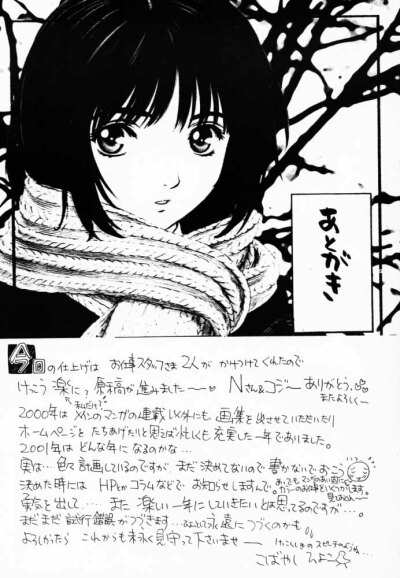 あとがき
今回の仕上げは お仕事スタッフさま2人が かけつけてくれたので
けっこう 楽にっ 原稿が進みました〜♡ Nさん&コジー ありがとう。
またよろしくー
私だけ?
2000年は メインのマンガの連載以外にも 画集を出させていただいたり
ホームページを たちあげたりと 思えば忙しくも充実した一年でありました。
2001年は どんな年に なるのかな…
実は… 色々計画しているのですが、まだ決めてないので 書かないでおこう
決めた時には HPとかコラムなどで お知らせしますんで。
勇気を出して…… また 楽しい一年にしていきたいとは思ってるのですが……
まだまだ 試行錯誤がつづきます… ひょっとして永遠につづくのかも
よろしかったら これからも末永く見守って下さいませー
けっこんしきの スピーチのような…
こばやし ひよこ